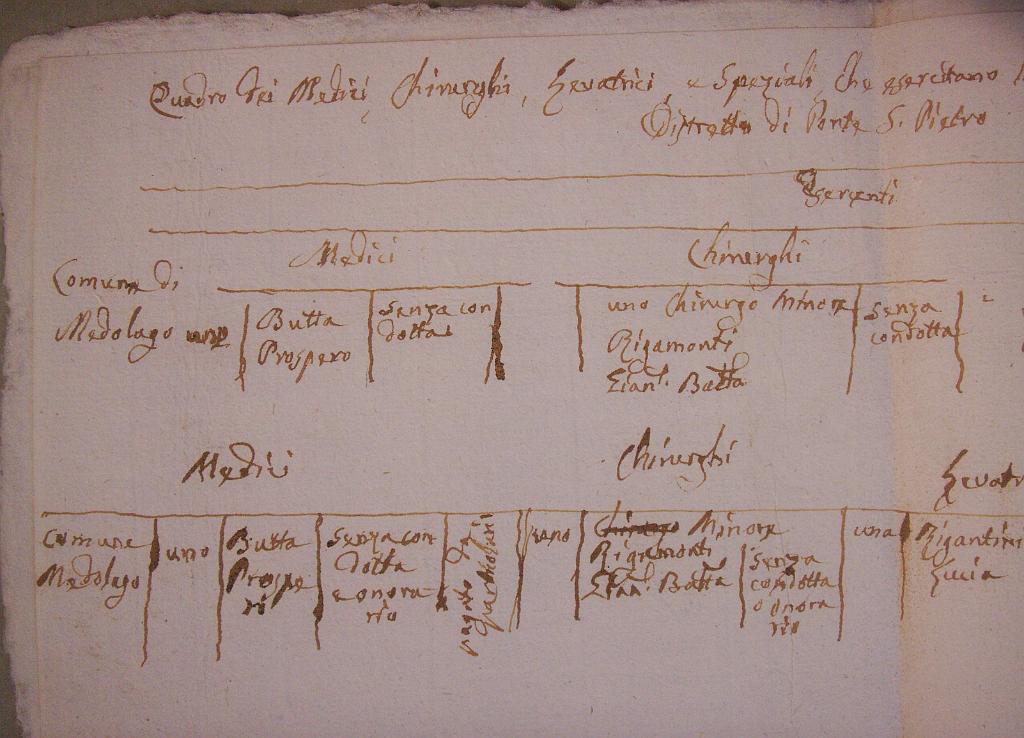 Quadro dei Medici, Chirurghi, Levatrici, e Speziali, che esercitano
Distretto di Ponte S. Pietro
Esercenti
Medici
Chirurghi
Comune di
Medolago uno
Butta
Prospero
Senza con
dotta
uno Chirurgo Minore
Rigamonti
Gian. Batta
Senza
condotta
Medici
Chirurghi
Levatr
Comune
Medolago
uno
Butta
Prospe
ro
Senza con
dotta
e onora
rio
pagato dai
uno
Chirurgo Minore
Rigamonti
Gian. Batta
Senza
condotta
o onora
rio
una
Rigantini
Lucia